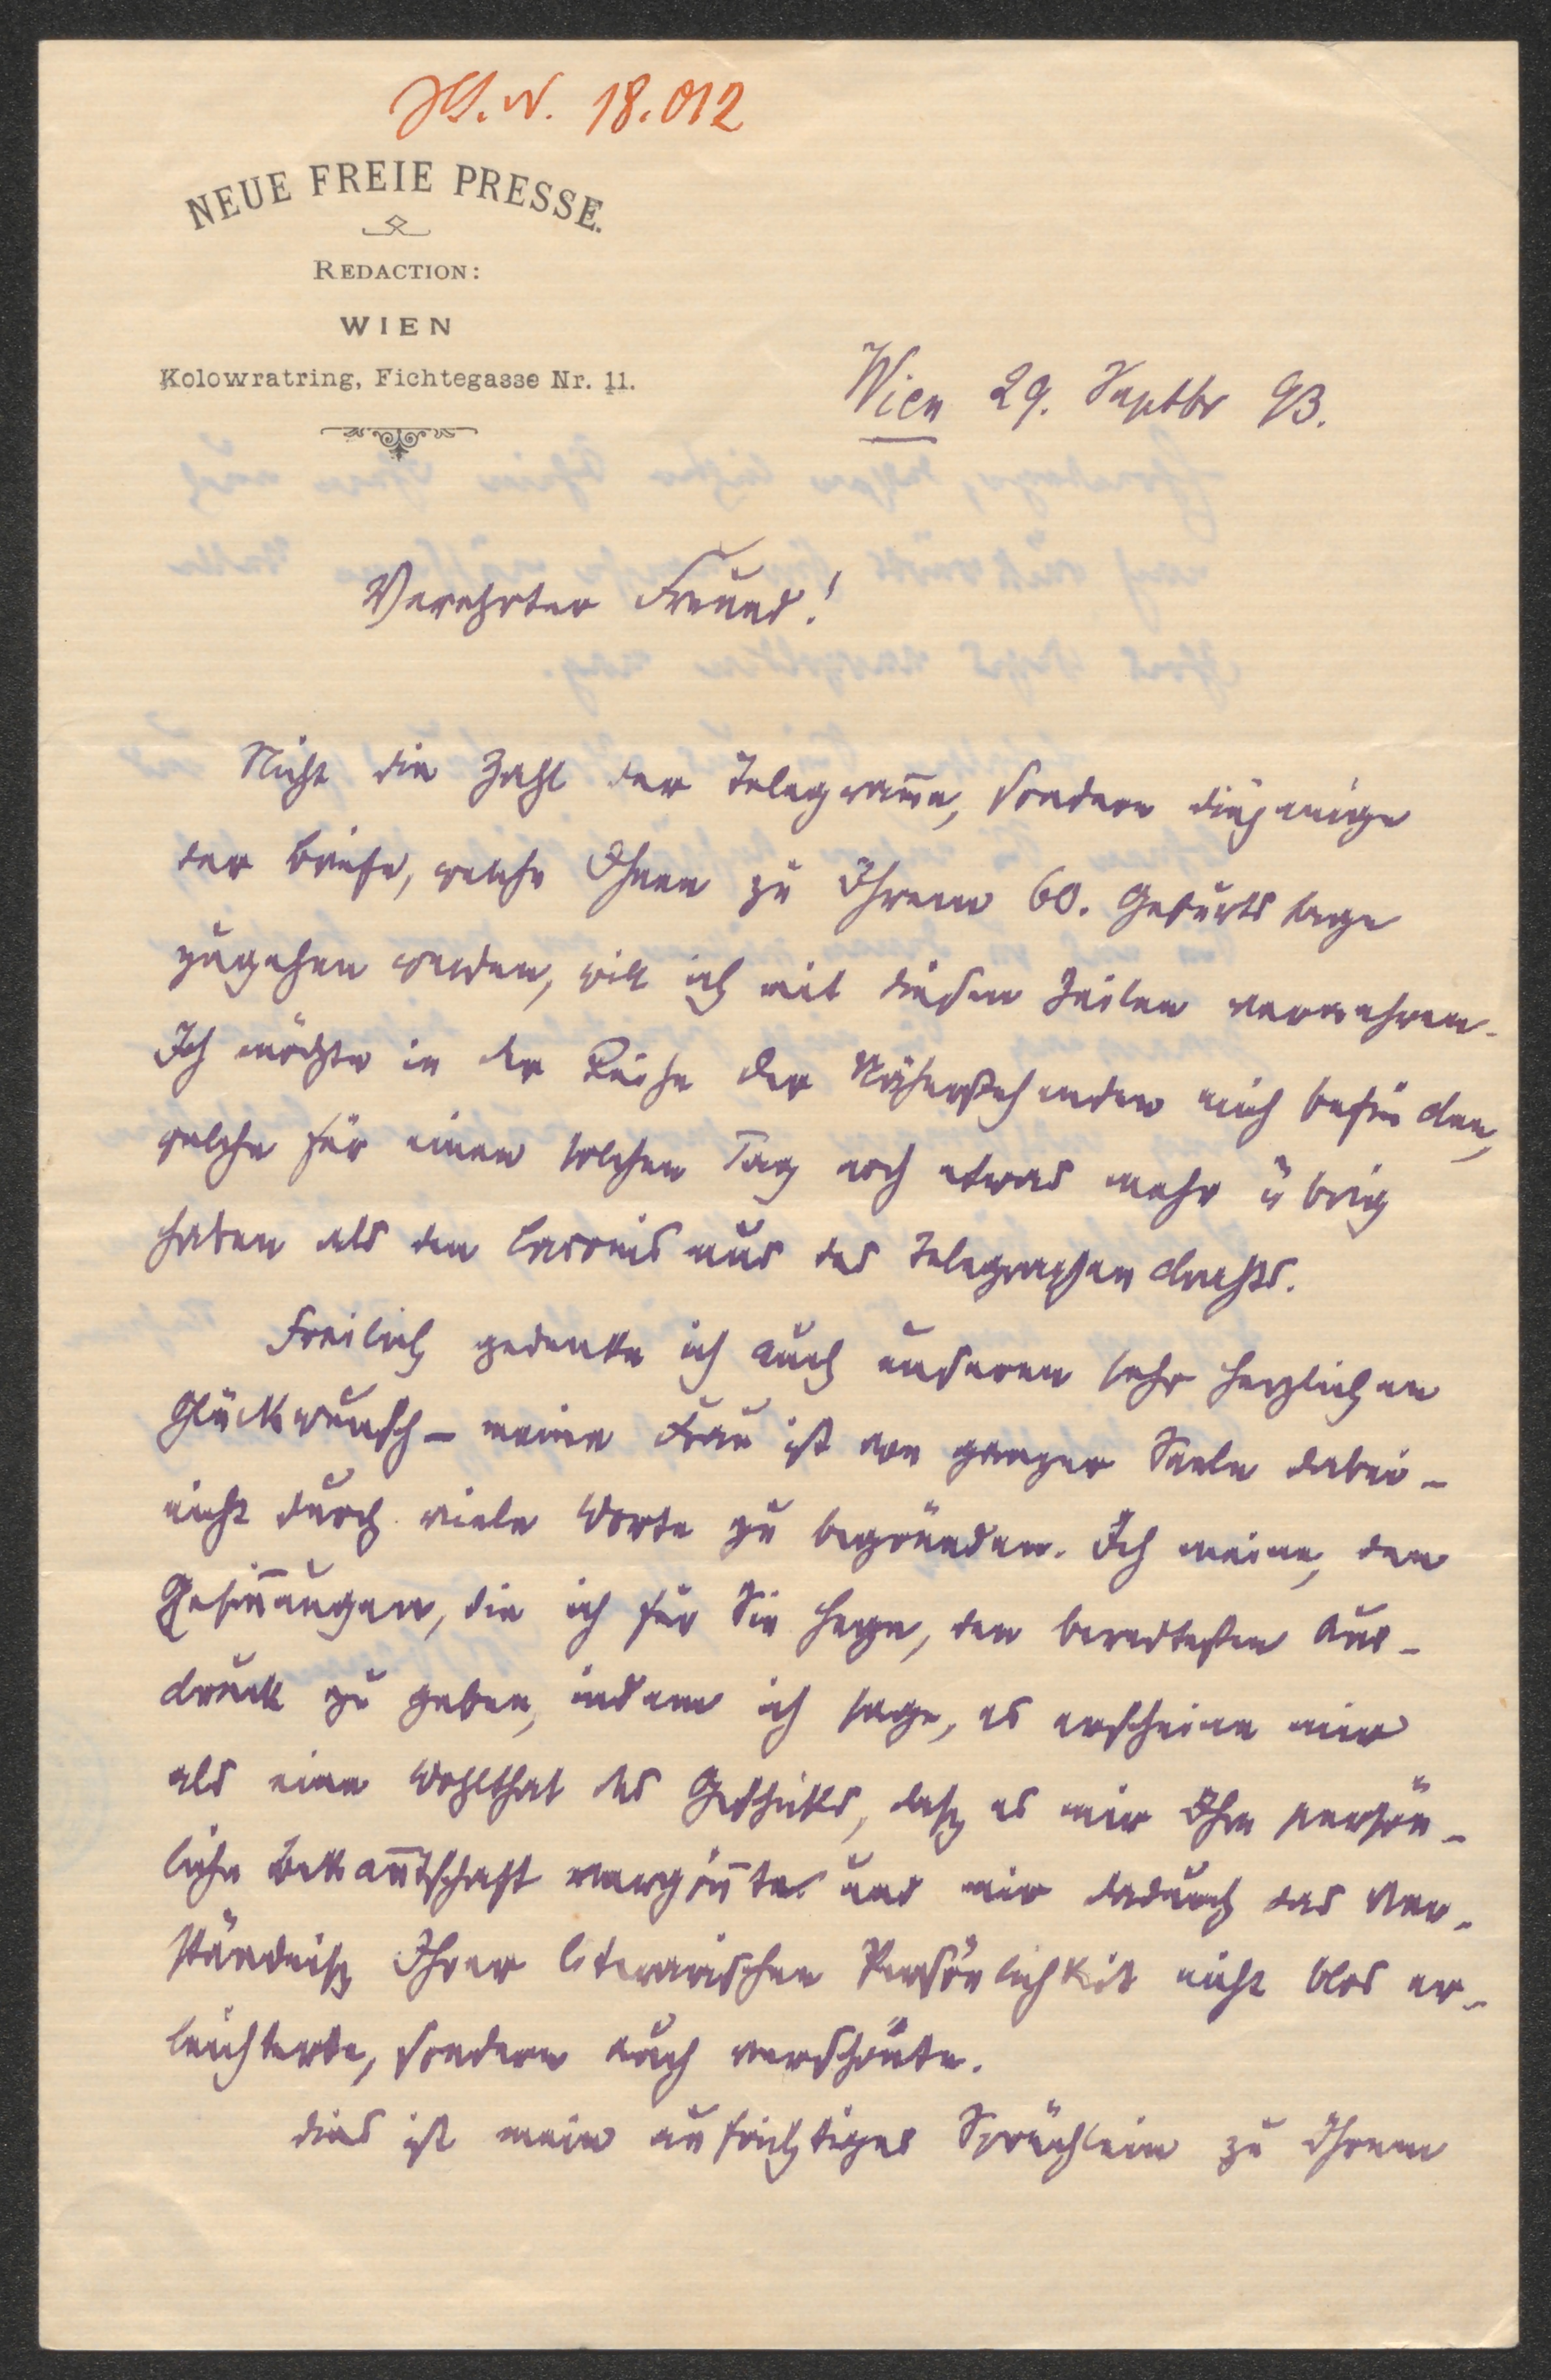 J.N. 18.012
NEUE FREIE PRESSE.
REDACTION:
WIEN
Kolowratring, Fichtegasse Nr. 11.
Wien 29. Septbr 93.
Verehrter Freund!
Nicht die Zahl der Telegram̅e, sondern diejenige
der Briefe, welche Ihnen zu Ihrem 60. Geburtstage
zugehen werden, will ich mit diesen Zeilen vermehren.
Ich möchte in der Reihe der Näherstehenden mich befinden,
welche für einen solchen Tag noch etwas mehr übrig
haben als den Laconismus des Telegraphendrahts.
Freilich gedenke ich auch unseren sehr herzlichen
Glückwunsch – meine Frau ist von ganzer Seele dabei –
nicht durch viele Worte zu begründen. Ich meine, den
Gesin̅ungen, die ich für Sie hege, den beredtesten Aus-
druck zu geben, indem ich sage, es erscheine mir
als eine Wohlthat des Geschicks, daß es mir Ihre persön-
liche Bekan̅tschaft vergön̅te und mir dadurch das Ver-
ständniß Ihrer literarischen Persönlichkeit nicht blos er-
leichterte, sondern auch verschönte.
Dies ist mein aufrichtiges Sprüchlein zu Ihrem